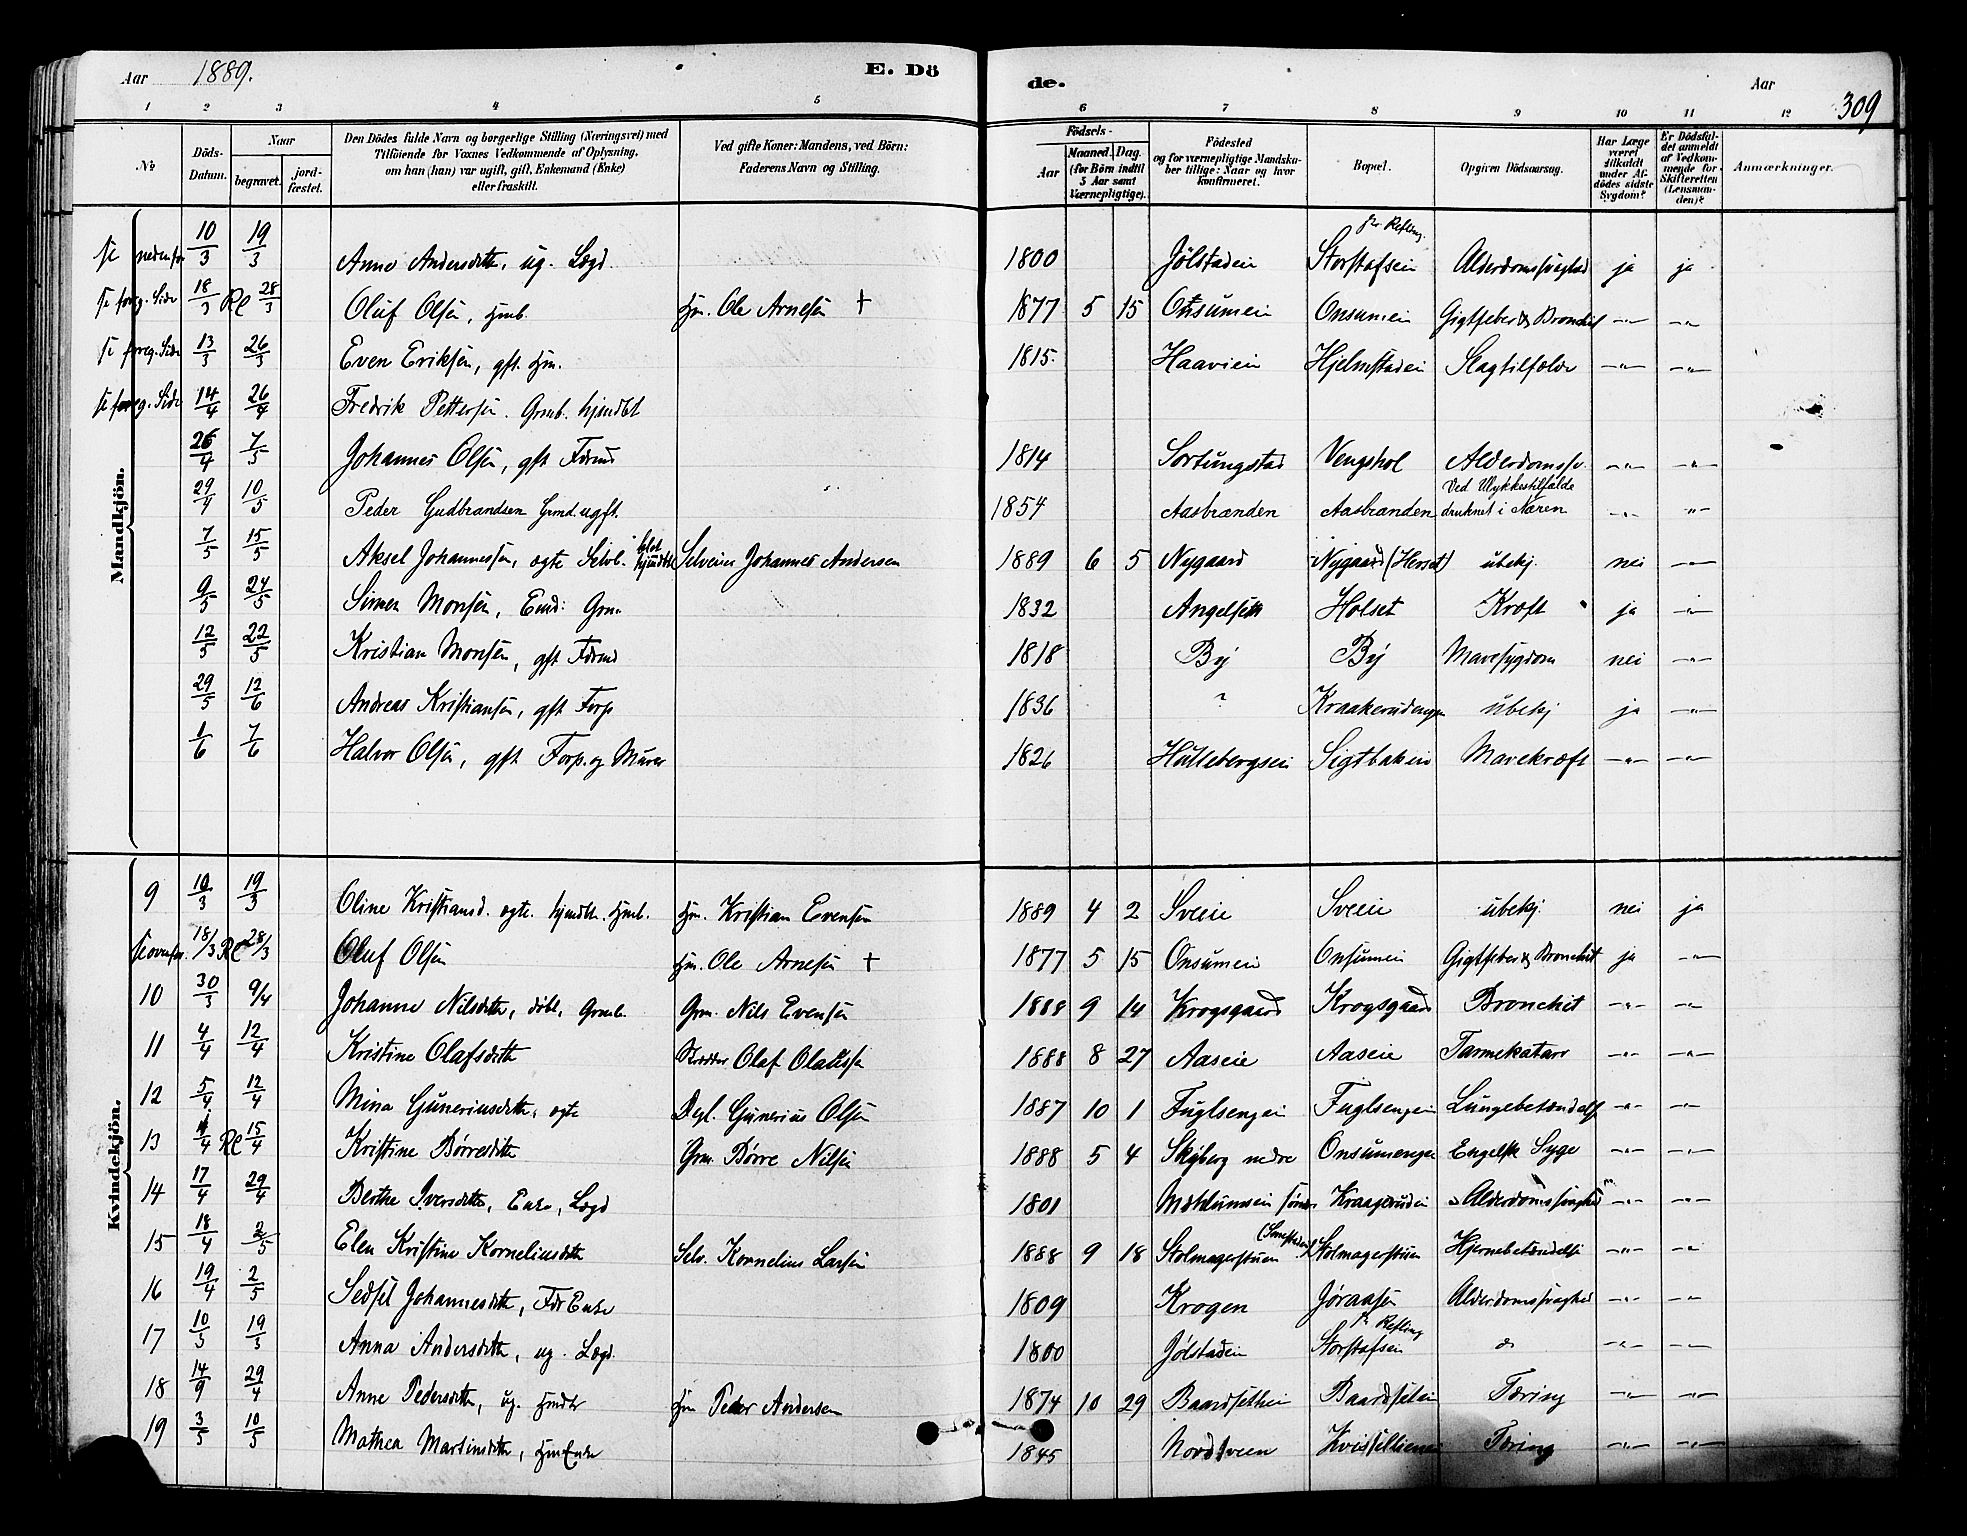 Aar 1889. E. Dö de. Aar 309
1 2 3 4 5 6 7 8 9 10 11 12
No
Döds-Datum.
Naar
begravet.
jord-fæstet.
Den Dödes fulde Navn og borgerlige Stilling (Næringsvei) med
Tilföiende for Voxnes Vedkommende af Oplysning,
om han (hun) var ugift, gift, Enkemand (Enke)
eller fraskilt.
Ved gifte Koner: Mandens, ved Börn:
Faderens Navn og Stilling.
Födsels-
Aar
Maaned. Dag.
(for Börn indtil
5 Aar samt
Værnepligtige).
Födested
og for værnepligtige Mandska-
ber tillige: Naar og hvor
konfirmeret.
Bopæl.
Opgiven Dödsaarsag.
Har Læge
været
tilkaldt
under Af-
dödes sidste
Sygdom?
Er Dödsfal-
det anmeldt
af Vedkom-
mende for
Skifteretten
(Lensman-
den)?
Anmærkninger.
Mandkjön.
se nedenfor 10/3 19/3 Anne Andersdtr, ug. Lægd. 1800 Jølstadein Storstafsein fr Refling. Alderdomssvaghed ja ja
se foreg. Side 18/3 Re 28/3 Oluf Olsen, hjmb. Hjm. Ole Arnesen + 1877 5 15 Onsumein Onsumein Gigtfeber & Bronchit -"- -"-
se foreg. Side 13/3 26/3 Even Eriksen, gft. hjm. 1815. Haaviein Hjelmstadein Slagtilfælde -"- -"-
se foreg. Side 14/4 26/4 Fredrik Pettersen. Grmb. hjmdbt
26/4 7/5 Johannes Olsen, gft Fdrmd 1814 Sortungstad Vengshol Alderdomssv. -"- -"-
29/4 10/5 Peder Gudbrandsen Grmd. ugft. 1854 Aasbrænden Aasbrænden Ved Ulykkestilfælde druknet i Næren -"- -"-
7/5 15/5 Aksel Johannessen, ægte Selvb. hjmdbt Selveier Johannes Andersen 1889 6 5 Nygaard Nygaard (Herset) ubekj. nei -"-
9/5 24/5 Simen Monsen, Emd: Grm. 1832 Angelsett Holset Kræft ja -"-
12/5 22/5 Kristian Monsen, gft Fdrmd 1818 By By Mavesygdom nei -"-
29/5 12/6 Andreas Kristiansen, gft Forp 1836 ? Kraakerudengen ubekj ja -"-
1/6 7/6 Halvor Olsen, gft Forp. og Murer 1826 Hullebergsein Sigtbakein Mavekræft -"- -"-
Kvindekjön.
9 10/3 19/3 Oline Kristiansd. ægte. hjmdbt. hjmb. Hjm. Kristian Evensen 1889 4 2 Sveie Sveie ubekj. nei ja
se ovenfor. 18/3 Re 28/3 Oluf Olsen Hjm. Ole Arnesen + 1877 5 15 Onsumein Onsumein Gigtfeber & Bronchit ja -"-
10 30/3 9/4 Johanne Nilsdtr, døbt, Grmb. Grm. Nils Evensen 1888 9 14 Krogsgaard Krogsgaard Bronchit -"- -"-
11 4/4 12/4 Kristine Olafsdtr Skrædder Olaf Olaussen 1888 8 27 Aaseie Aaseie Tarmekatarr -"- -"-
12 5/4 12/4 Mina Guneriusdtr, ægte Dagl. Gunerius Olsen 1887 10 1 Fuglsengein Fuglsengein Lungebetændelse -"- -"-
13 4/4 Re 15/4 Kristine Børresdtr Grm Børre Nilsen 1888 5 4 Skyberg nedre Onsumengen Engelsk Syge -"- -"-
14 17/4 29/4 Berthe Iversdtr, Enke, Lægd 1801 Mæhlumsein søndre Kraagerudein Alderdomssvaghed -"- -"-
15 18/4 2/5 Elen Kristine Korneliusdtr Selv. Kornelius Larsen 1888 9 18 Stolmagerstuen Stolmagerstuen Hjernebetændelse -"- -"-
16 19/4 2/5 Sedsel Johannesdtr, Fdr Enke 1809 Krogen Jøraasen Alderdomssvaghed -"- -"-
17 10/3 19/3 Anna Andersdtr, ug. Lægd. 1800 Jølstadein Storstafsein fr Refling do -"- -"-
18 14/9 29/4 Anne Pedersdtr, ug. hjmdtr Hjm Peder Andersen 1874 10 29 Baardsethein Baardsetein Tæring -"- -"-
19 3/5 10/5 Mathea Martinsdtr, hjm Enke 1845 Nordsveen Kvissellien Tæring -"- -"-